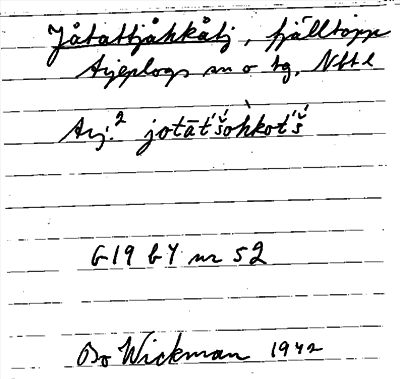 Jåtattjåhkåtj, fjälltopp
Arjeplogs sn o tg, Nbtl
Arj.² jotāt́šohkot́š
G19 b4 nr 52
Bo Wickman 1942